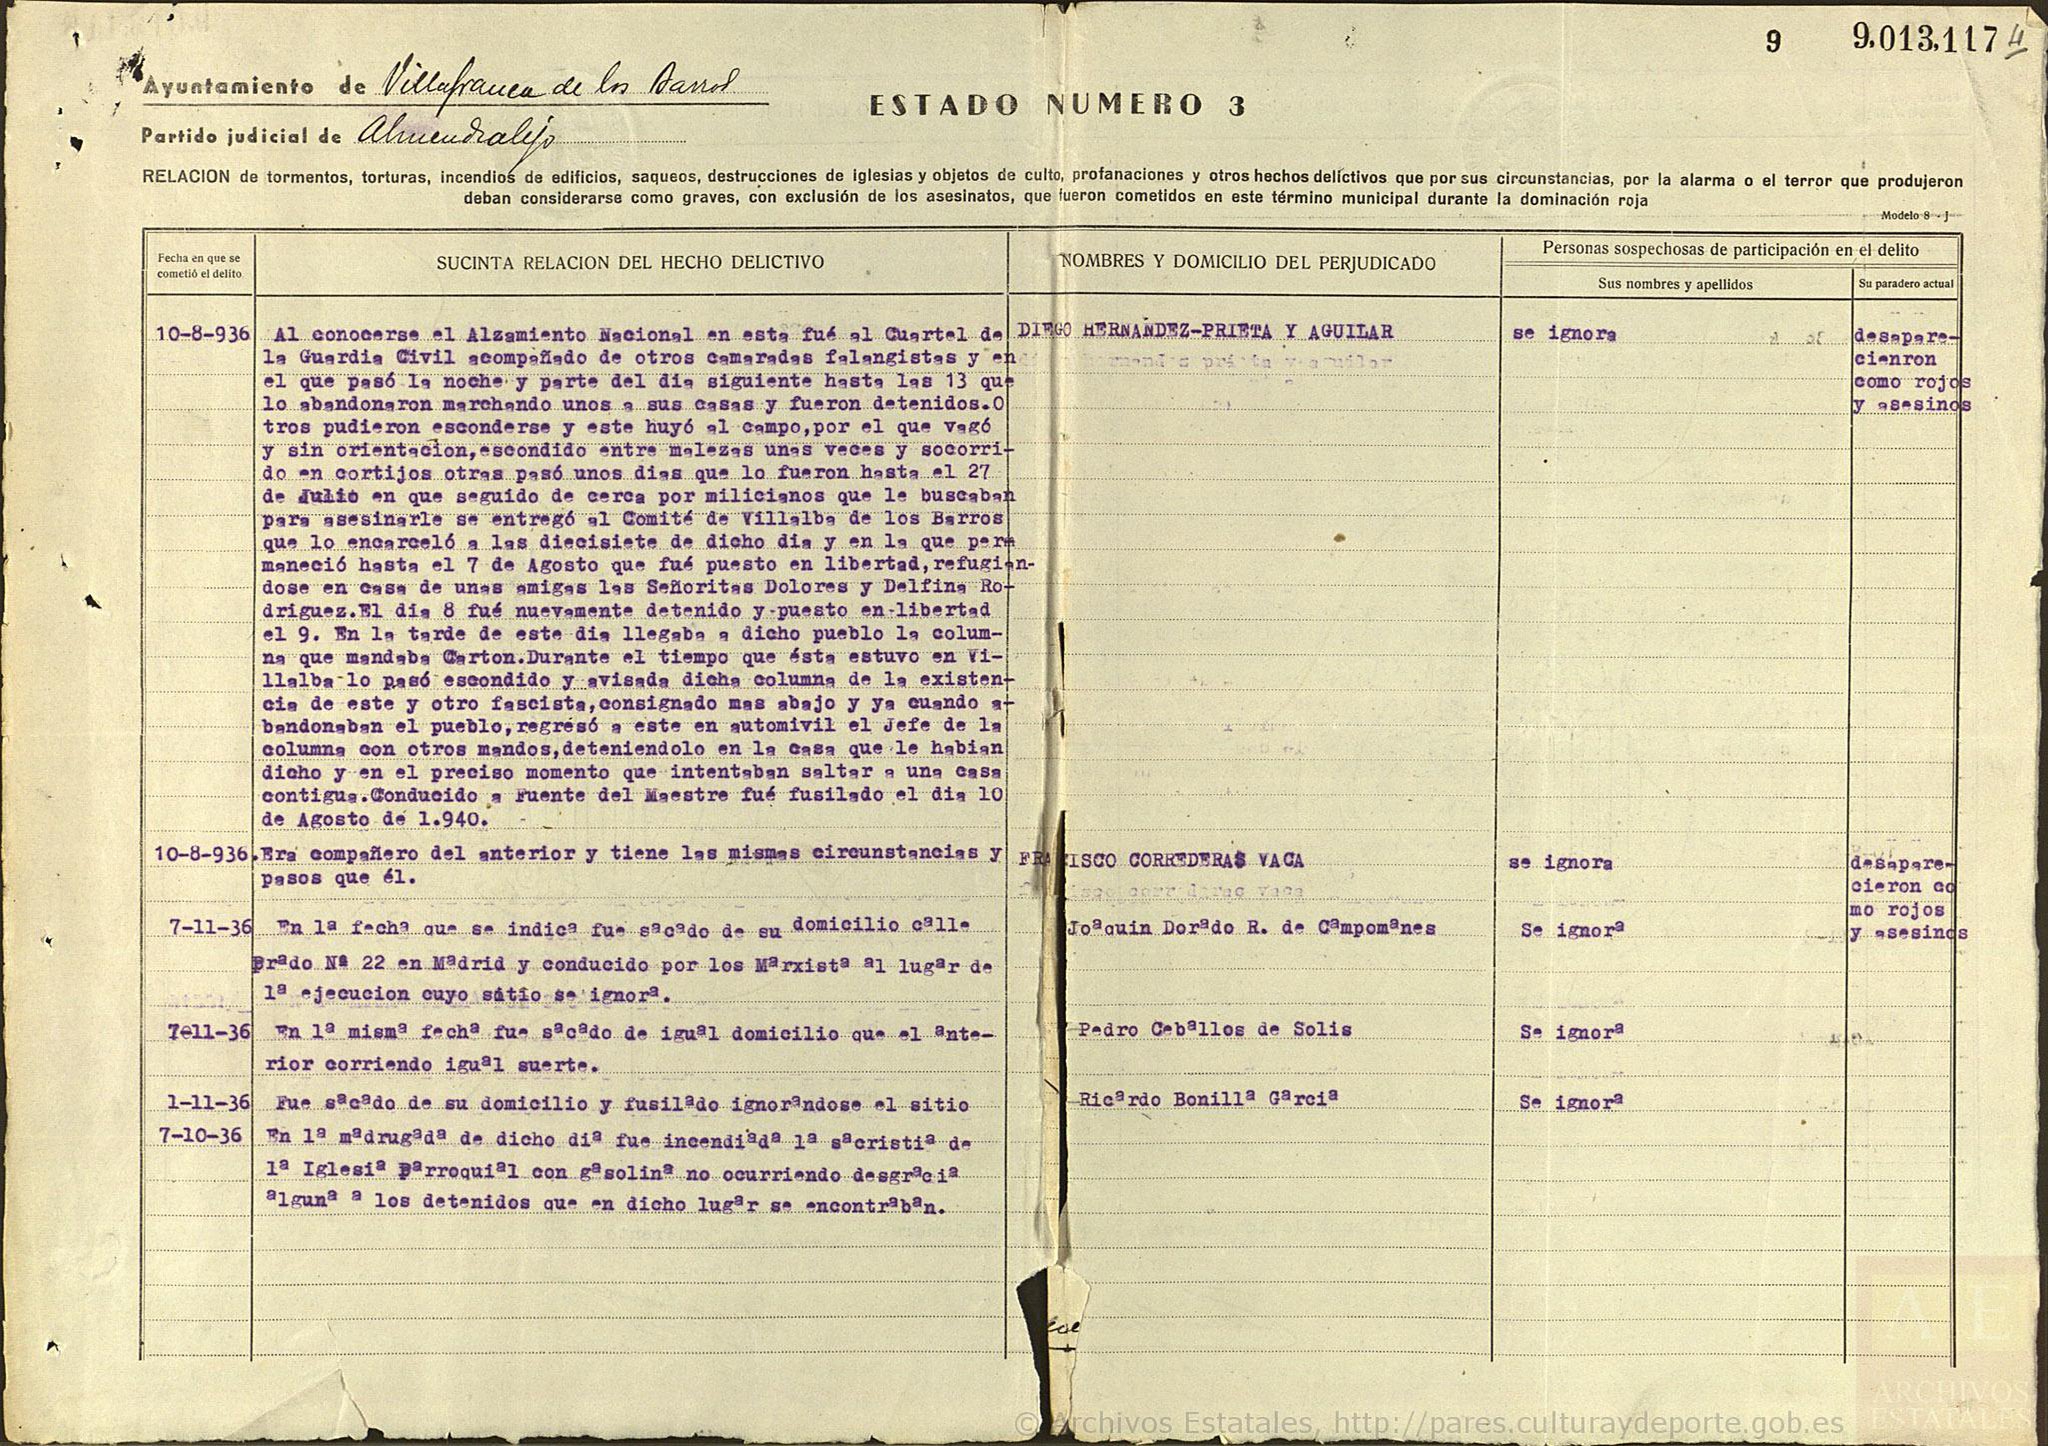 9 9.013.117 4
Ayuntamiento de Villafranca de los Barros
ESTADO NUMERO 3
Partido judicial de Almendralejo
RELACION de tormentos, torturas, incendios de edificios, saqueos, destrucciones de iglesias y objetos de culto, profanaciones y otros hechos delictivos que por sus circunstancias, por la alarma o el terror que produjeron
deban considerarse como graves, con exclusión de los asesinatos, que fueron cometidos en este término municipal durante la dominación roja
Modelo 8 - J
Fecha en que se
cometió el delito
SUCINTA RELACION DEL HECHO DELICTIVO
NOMBRES Y DOMICILIO DEL PERJUDICADO
Personas sospechosas de participación en el delito
Sus nombres y apellidos
Su paradero actual
10-8-936
Al conocerse el Alzamiento Nacional en esta fué al Cuartel de
la Guardia Civil acompañado de otros camaradas falangistas y en
el que pasó la noche y parte del dia siguiente hasta las 13 que
lo abandonaron marchando unos a sus casas y fueron detenidos.O
tros pudieron esconderse y este huyó al campo,por el que vagó
y sin orientacion,escondido entre malezas unas veces y socorri-
do en cortijos otras pasó unos dias que lo fueron hasta el 27
de Julio en que seguido de cerca por milicianos que le buscaban
para asesinarle se entregó al Comité de Villalba de los Barros
que lo encarceló a las diecisiete de dicho dia y en la que perm
maneció hasta el 7 de Agosto que fué puesto en libertad,refugian-
dose en casa de unas amigas las Señoritas Dolores y Delfina Ro-
driguez.El dia 8 fué nuevamente detenido y puesto en libertad
el 9. En la tarde de este dia llegaba a dicho pueblo la colum-
na que mandaba Carton.Durante el tiempo que ésta estuvo en Vi-
llalba lo pasó escondido y avisada dicha columna de la existen-
cia de este y otro fascista,consignado mas abajo y ya cuando a-
bandonaban el pueblo,regresó a este en automivil el Jefe de la
columna con otros mandos,deteniendolo en la casa que le habian
dicho y en el preciso momento que intentaban saltar a una casa
contigua.Conducido a Fuente del Maestre fué fusilado el dia 10
de Agosto de 1.940.
DIEGO HERNANDEZ-PRIETA Y AGUILAR
se ignora
desapare-
cienron
como rojos
y asesinos
10-8-936
.Era compañero del anterior y tiene las mismas circunstancias y
pasos que él.
FRA CISCO CORREDERAS VACA
se ignora
desapare-
cieron co
mo rojos
y asesinos
7-11-36
En la fecha que se indica fue sacado de su domicilio calle
Prado Nª 22 en Madrid y conducido por los Marxista al lugar de
la ejecucion cuyo sitio se ignora.
Joaquin Dorado R. de Campomanes
Se ignora
7-11-36
En la misma fecha fue sacado de igual domicilio que el ante-
rior corriendo igual suerte.
Pedro Ceballos de Solis
Se ignora
1-11-36
Fue sacado de su domicilio y fusilado ignorandose el sitio
Ricardo Bonilla Garcia
Se ignora
7-10-36
En la madrugada de dicho dia fue incendiada la sacristia de
la Iglesia Parroquial con gasolina no ocurriendo desgracia
alguna a los detenidos que en dicho lugar se encontraban.
A E
ARCHIVOS
ESTATALES
© Archivos Estatales, http://pares.culturaydeporte.gob.es